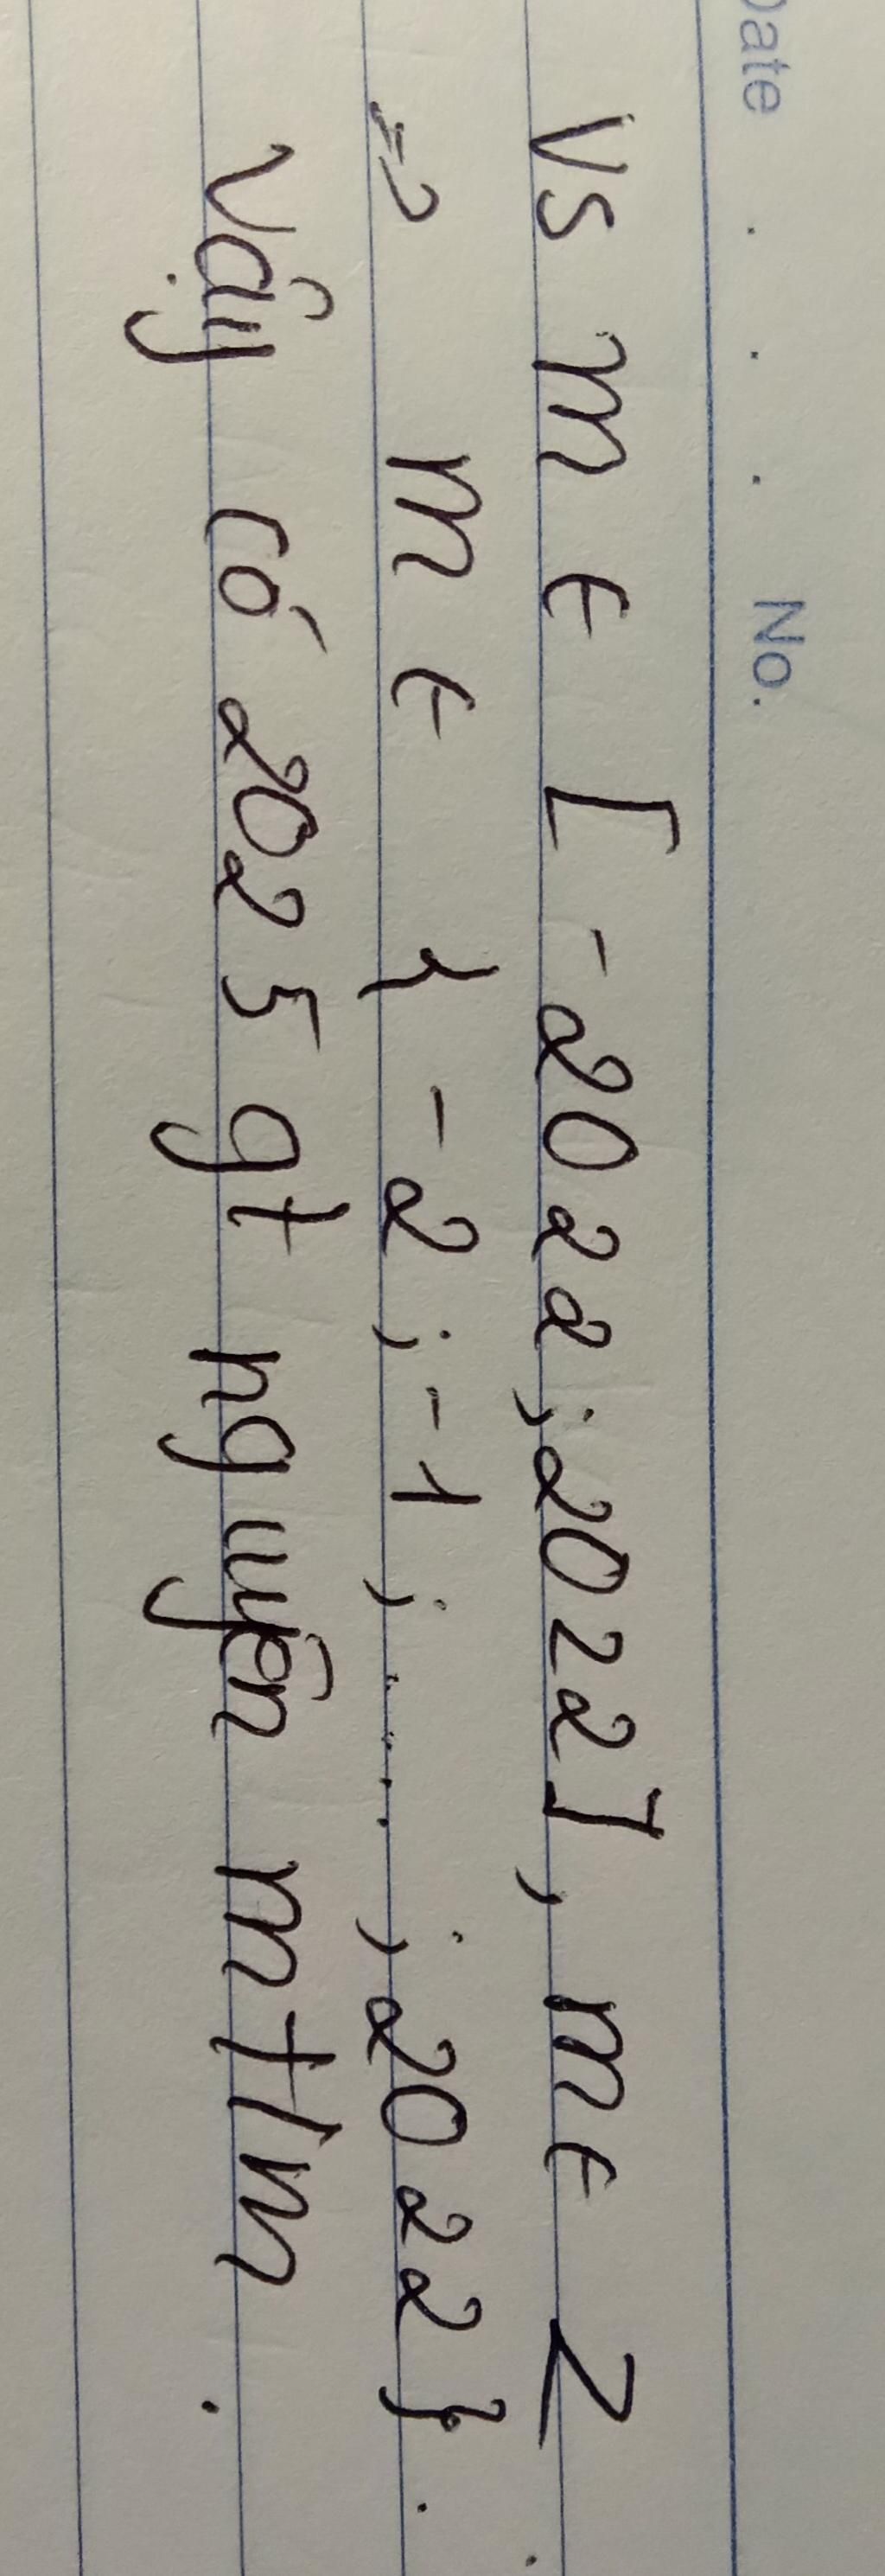 Date . . . No.
Vs m ∈ [-2022;2022], m ∈ Z
=> m ∈ {-2; -1; ....; 2022}.
Vậy có 2025 gt nguyên m t/m.